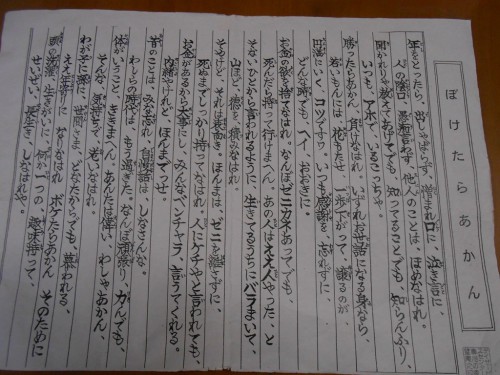 ぼけたらあかん
年をとったら、出しゃばらず、憎まれ口に、泣き言に、
人の陰口、愚痴言わず、他人のことは、ほめなはれ。
聞かれりゃ教えてあげてでも、知ってることでも、知らんふり、
いつも、アホで、いるこっちゃ。
勝ったらあかん、負けなはれ。いずれお世話になる身なら、
若いもんには、花もたせ、一歩下がって、譲るのが、
円満にいくコツですわ。いつも感謝を、忘れずに、
どんな時でも、ヘイ、おおきに。
お金の欲を、捨てなはれ。なんぼゼニカネあってでも、
死んだら持って行けまへん。あの人はええ人やった、と
そないひとから言われるように、生きてるうちにバラまいて、
山ほど、徳を、積みなはれ。
そやけど、それは表向き。ほんまは、ゼニを離さずに、
死ぬまでしっかり持ってなはれ。人にケチやと言われても、
お金があるから大事にし、みんなベンチャラ、言うてくれる。
内緒やけれど、ほんまでっせ。
昔のことは、みな忘れ、自慢話は、しなさんな。
わしらの時代は、もう過ぎた。なんぼ頑張り、力んでも、
体がいうこと、ききまへん。あんたは偉い、わしゃあかん、
そんな気持ちで、おいなはれ。
わが子に孫に、世間さま、どなたからでも、慕われる、
ええ年寄りに、なりなはれ。ボケたらあかん、そのために
頭の洗濯、生きがいに、何か一つの、趣味持って、
せいぜい、長生き、しなはれや。